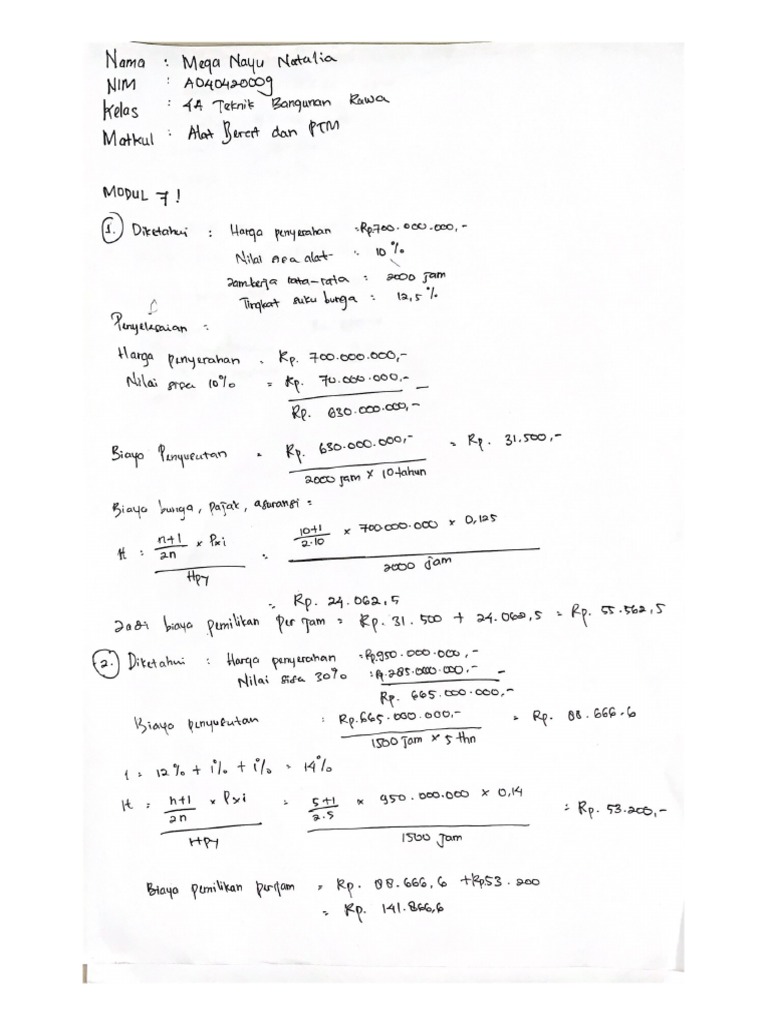 Nama : Mega Nayu Natalia
NIM : A040420009
Kelas : 4A Teknik Bangunan Rawa
Matkul : Alat Berat dan PTM
MODUL 7!
1. Diketahui : Harga penyerahan = Rp.700.000.000,-
Nilai sisa alat = 10%
Jam kerja rata-rata : 2000 jam
Tingkat suku bunga : 12,5%
Penyelesaian :
Harga penyerahan = Rp. 700.000.000,-
Nilai sisa 10% = Rp. 70.000.000,- -
Rp. 630.000.000,-
Biaya Penyusutan = Rp. 630.000.000,- = Rp. 31.500,-
2000 jam × 10 tahun
Biaya bunga, pajak, asuransi =
H : n+1/2n × Pxi = 10+1/2.10 × 700.000.000 × 0,125
Hpy 2000 jam
= Rp. 24.062,5
Jadi biaya pemilikan per jam = Rp. 31.500 + 24.062,5 = Rp. 55.562,5
2. Diketahui : Harga penyerahan = Rp.950.000.000,-
Nilai sisa 30% = Rp.285.000.000,- -
Rp. 665.000.000,-
Biaya penyusutan : Rp.665.000.000,- = Rp. 88.666.6
1500 jam × 5 thn
i = 12% + 1% + 1% = 14%
H = n+1/2n × Pxi = 5+1/2.5 × 950.000.000 × 0,14 = Rp. 53.200,-
Hpy 1500 jam
Biaya pemilikan perjam = Rp. 88.666,6 + Rp53.200
= Rp. 141.866,6